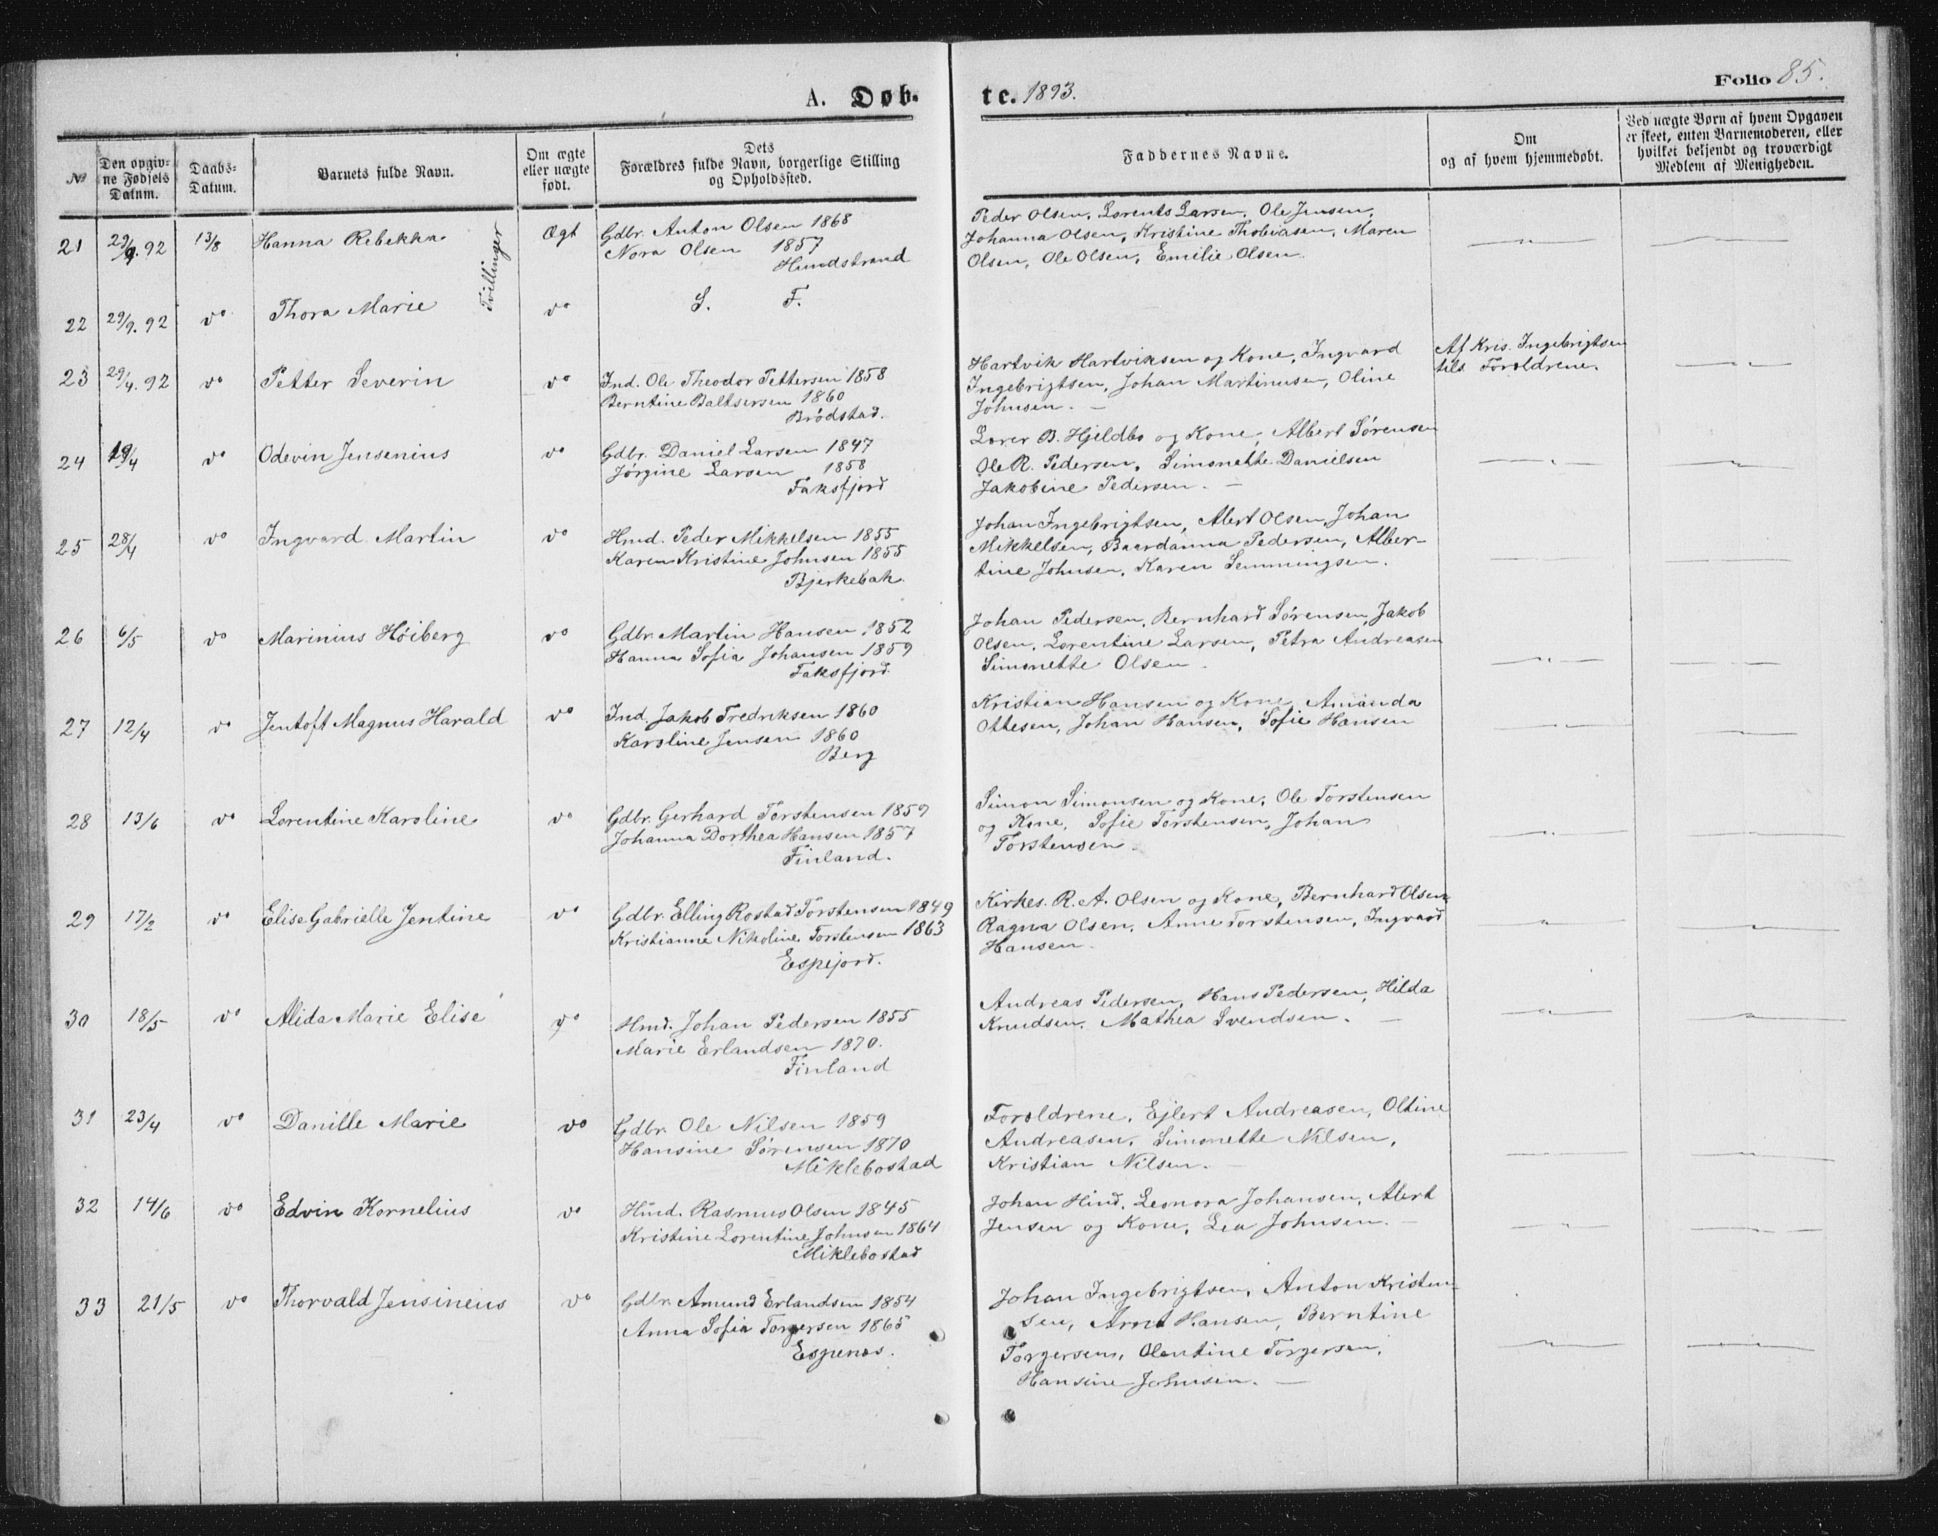 A. Døb-
te. 1893.
Folio 85.
№
Den opgiv-
ne Fødsels
Datum.
Daabs-
Datum.
Barnets fulde Navn.
Om ægte
eller uægte
født.
Dets
Forældres fulde Navn, borgerlige Stilling
og Opholdssted.
Faddernes Navne.
Om
og af hvem hjemmedøbt.
Ved uægte Børn af hvem Opgaven
er skeet, enten Barnemoderen, eller
hvilket bekjendt og troværdigt
Medlem af Menigheden.
21 29/9. 92 13/8 Hanna Rebekka Tvillinger Ægt Gdbr. Anton Olsen 1868
Nora Olsen 1857
Hundstrand
Peder Olsen, Lorents Larsen, Ole Jensen,
Johanna Olsen, Kristine Thobiasen, Maren
Olsen, Ole Olsen, Emilie Olsen.
22 29/9. 92 do Thora Marie do S. F.
23 29/4. 92 do Petter Severin do Ind. Ole Theodor Pettersen 1858
Berntine Baltsersen 1860
Brødstad.
Hartvik Hartviksen og Kone, Ingvard
Ingebrigtsen, Johan Martinusen, Oline
Johnsen. —
Af Kris. Ingebrigtsen
tils Foroldrene.
24 19/4 do Odevin Jensenius do Gdbr. Daniel Larsen 1847
Jørgine Larsen 1858
Faksfjord
Lærer B. Hjeldbo og Kone, Albert Sørensen
Ole R. Pedersen, Simonette Danielsen
Jakobine Pedersen. —
25 28/4 do Ingvard Martin do Hmd. Peder Mikkelsen 1855
Karen Kristine Johnsen 1855
Bjerkebak.
Johan Ingebrigtsen, Alert Olsen, Johan
Mikkelsen, Baardanna Pedersen, Alber-
tine Johnsen, Karen Semmingsen.
26 6/5 do Marinius Höiberg do Gdbr. Martin Hansen 1852
Hanna Sofia Johansen 1859
Faksfjord.
Johan Pedersen, Bernhard Sørensen, Jakob
Olsen, Lorentine Larsen, Petra Andreasen
Simonette Olsen.
27 12/4 do Jentoft Magnus Harald do Ind. Jakob Fredriksen 1860
Karoline Jensen 1860
Berg
Kristian Hansen og Kone, Amanda
Ottesen, Johan Hansen, Sofie Hansen
28 13/6 do Lorentine Karoline do Gdbr. Gerhard Torstensen 1859
Johanna Dorthea Hansen 1857
Finland.
Simon Simonsen og Kone, Ole Torstensen
og Kone, Sofie Torstensen, Johan
Torstensen.
29 17/2 do Elise Gabrielle Jentine do Gdbr. Elling Rostad Torstensen 1849
Kristianne Nikoline Torstensen 1863
Espejord.
Kirkes. R. A. Olsen og Kone, Bernhard Olsen
Ragna Olsen, Anne Torstensen, Ingvard
Hansen.
30 18/5 do Alida Marie Elise do Hmd. Johan Pedersen 1855
Marie Erlandsen 1870.
Finland
Andreas Pedersen, Hans Pedersen, Hilda
Knudsen, Mathea Svendsen. —
31 23/4 do Danille Marie do Gdbr. Ole Nilsen 1859
Hansine Sørensen 1870
Miklebostad
Foroldrene, Ejlert Andreasen, Oltine
Andreasen, Simonette Nilsen,
Kristian Nilsen. —
32 14/6 do Edvin Kornelius do Hmd. Rasmus Olsen 1845
Kristine Lorentine Johnsen 1864
Miklebostad
Johan Hind, Leonora Johansen, Alert
Jensen og Kone, Lea Johnsen. —
33 21/5 do Thorvald Jensineus do Gdbr. Amund Erlandsen 1854
Anna Sofia Torgersen 1865
Espenes.
Johan Ingebrigtsen, Anton Kristen-
sen, Arnt Hansen, Berntine
Torgersen, Olentine Torgersen,
Hansine Johnsen. —